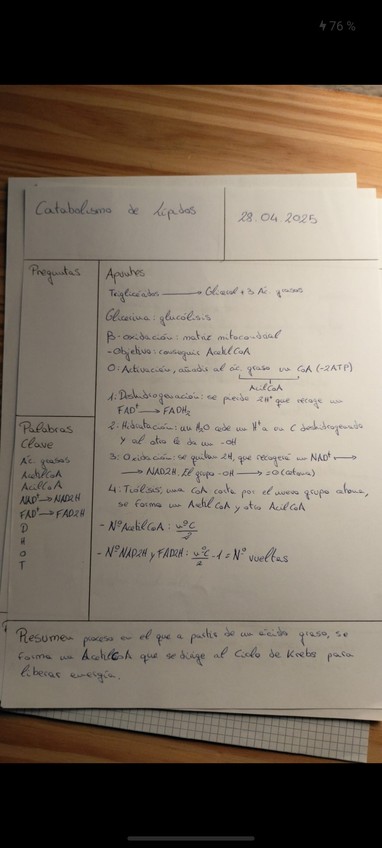 76 %
Catabolismo de Lípidos
28.04.2025
Preguntas
Apuntes
Triglicéridos → Glicerol + 3 Ác. grasos
Glicerina: glucólisis
β-oxidación: matriz mitocondrial
-Objetivo: conseguir AcetilCoA
0: Activación, añadir al ác. graso un CoA (-2ATP)
AcilCoA
1: Deshidrogenación: se pierde 2H⁺ que recoge un
FAD⁺ → FADH₂
2: Hidratación: un H₂O cede un H⁺ a un C deshidrogenado
y al otro le da un -OH
3: Oxidación: se quitan 2H, que recogerá un NAD⁺ →
→ NAD2H. El grupo -OH → =O (cetona)
4: Tiólisis; una CoA corta por el nuevo grupo cetona,
se forma un Acetil CoA y otro AcilCoA
- Nº AcetilCoA: nºC/2
- Nº NAD2H y FAD2H: nºC/2 - 1 = Nº vueltas
Palabras
Clave
Ác. grasos
AcetilCoA
AcilCoA
NAD⁺ → NAD2H
FAD⁺ → FAD2H
D
H
O
T
Resumen proceso en el que a partir de un ácido graso, se
forma un AcetilCoA que se dirige al Ciclo de Krebs para
liberar energía.